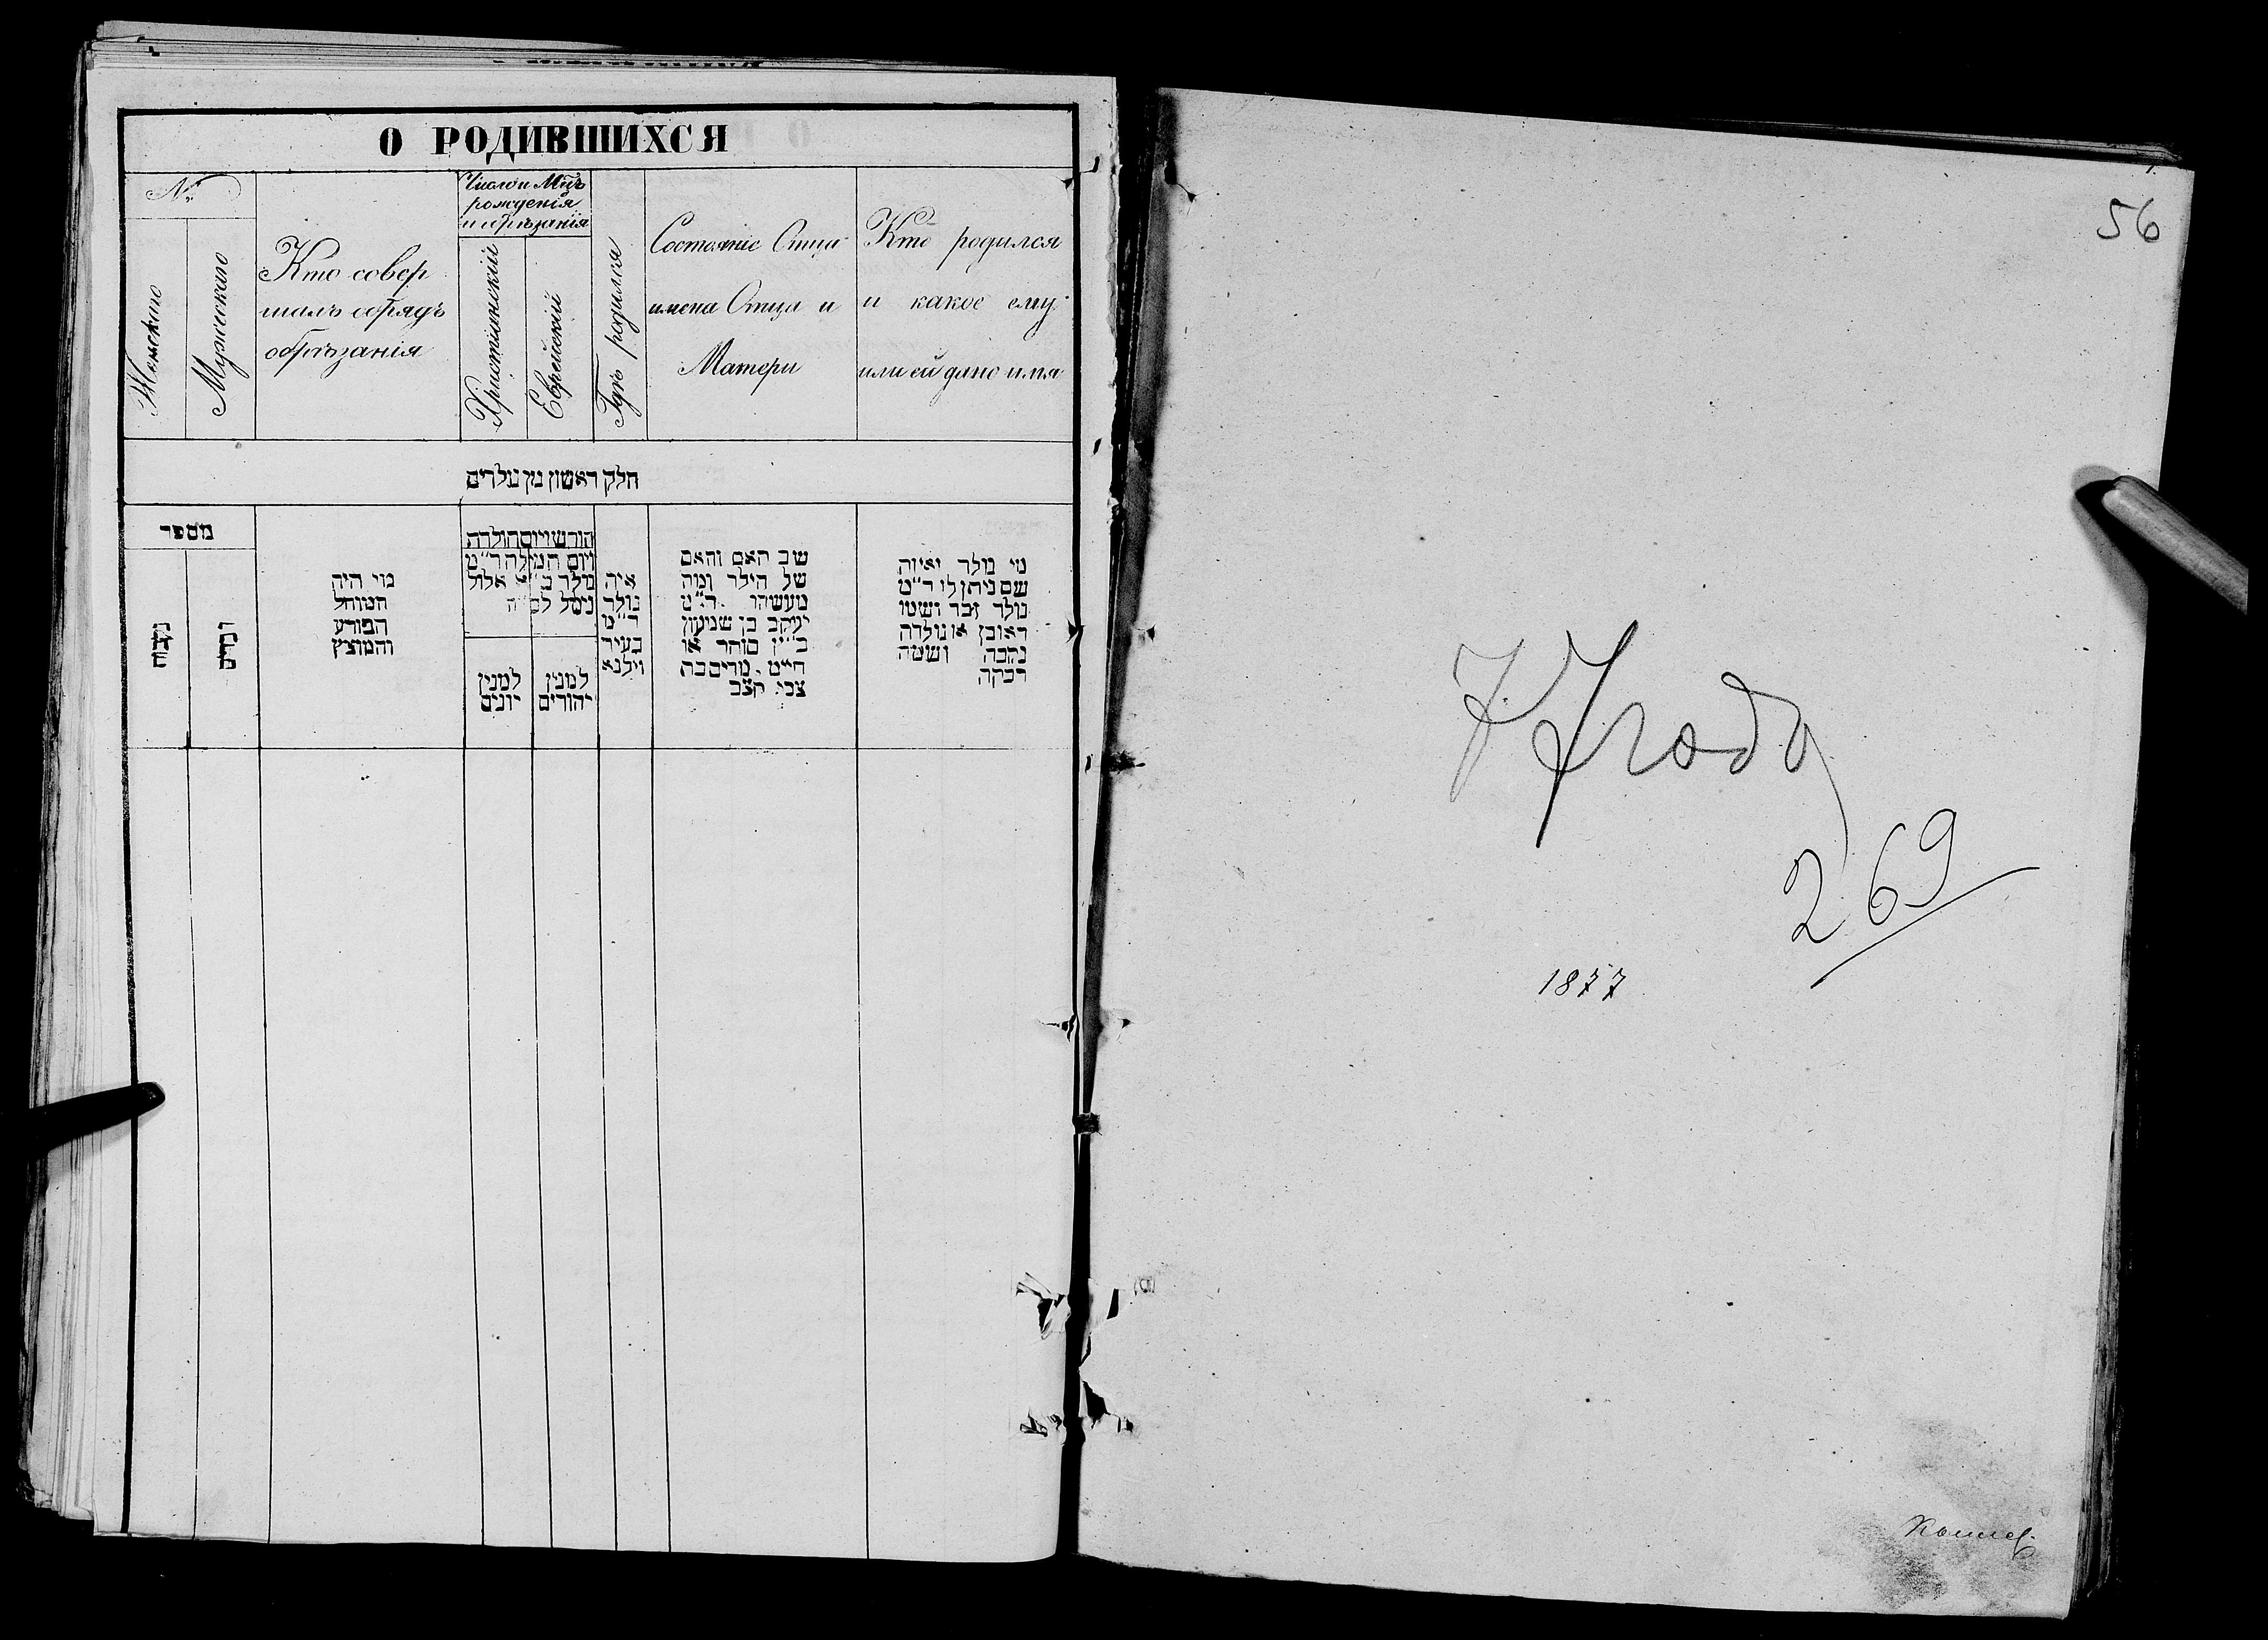 О РОДИВШИХСЯ
№
Женскаго
Мужескаго
Кто совер
шалъ обрядъ
обрѣзанія
Число и Мцъ
рожденія
и обрѣзанія
Христіанскій
Еврейскій
Гдѣ родился
Состояніе Отца
имена Отца и
Матери
Кто родился
и какое ему
или ей дано имя
חלק ראשון מן נולדים
מספר
נקבות
זכרים
מי היה
המוהל
הפורע
והמוצץ
חודש ויום הולדת
ויום המילה ד״מ
נולד ב״א אלול
למנין
יונים
למנין
יהודים
איה
נולד
ד״מ
בעיר
וילנא
שם האם והאם
של הילד ומה
מעשהו ד״מ
יעקב בן שמעון
כ״ץ סוחר או
חייט. מרים בת
צבי קצב
מי נולד ואיזה
שם ניתן לו ד״מ
נולד זכר ושמו
ראובן או נולדה
נקבה ושמה
רבקה
56
269
1877